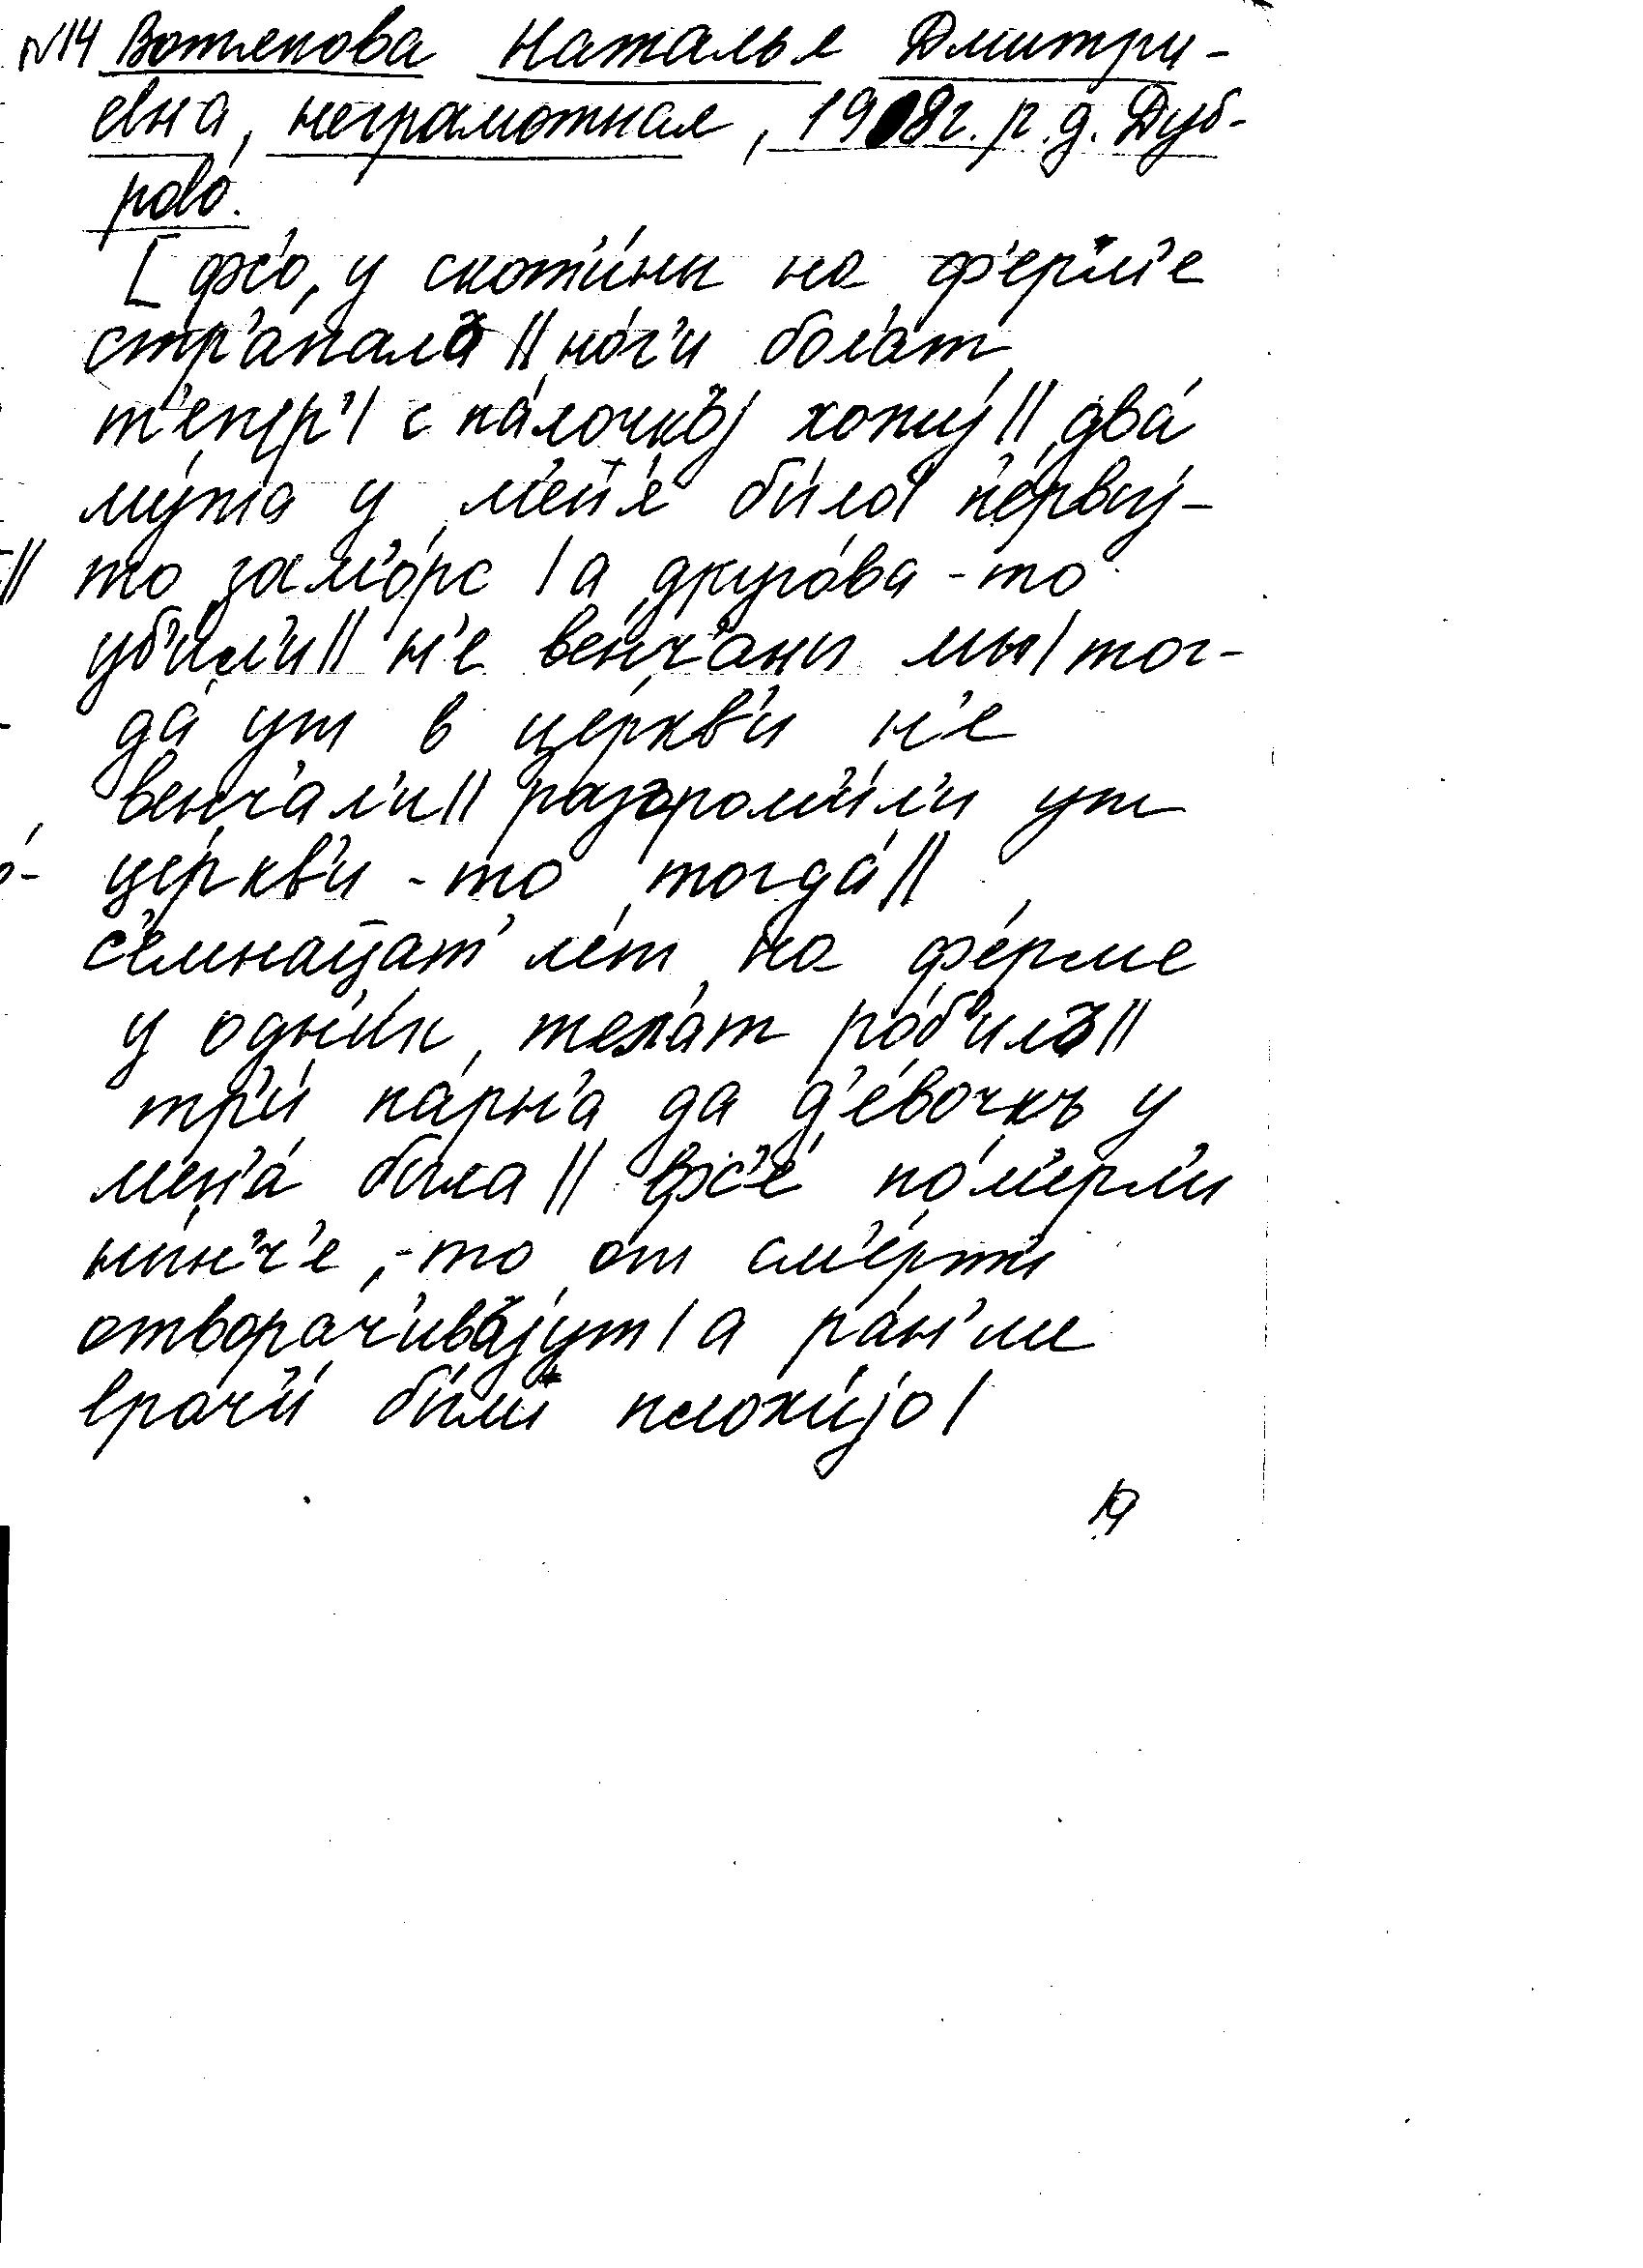 №14 Вотякова Наталья Дмитри-
евна, неграмотная, 1908г. р. д. Дуб-
рово.
[фс'о, у скот'ины на ф'ерм'е
стр'апала || ног'и бол'ат
т'епер' | с палочкъj хожу || два
мужа у м'ен'я было первыj-
то зам'орс | а другова-то
уб'ил'и || н'е вен'ч'аны мы | тог-
да уш в церкв'и н'е
венч'ал'и || разгром'ил'и уш
церкв'и-то тогда ||
с'емнацат' лет на ферме
у одн'их т'ел'ат роб'илъ ||
тр'и парн'а да д'евочкъ у
мен'а была || фс'е пом'ерл'и
нын'ч'е,-то от см'ерт'и
отворач'ивъjут | а ран'ше
врач'и были плохиjо |
19